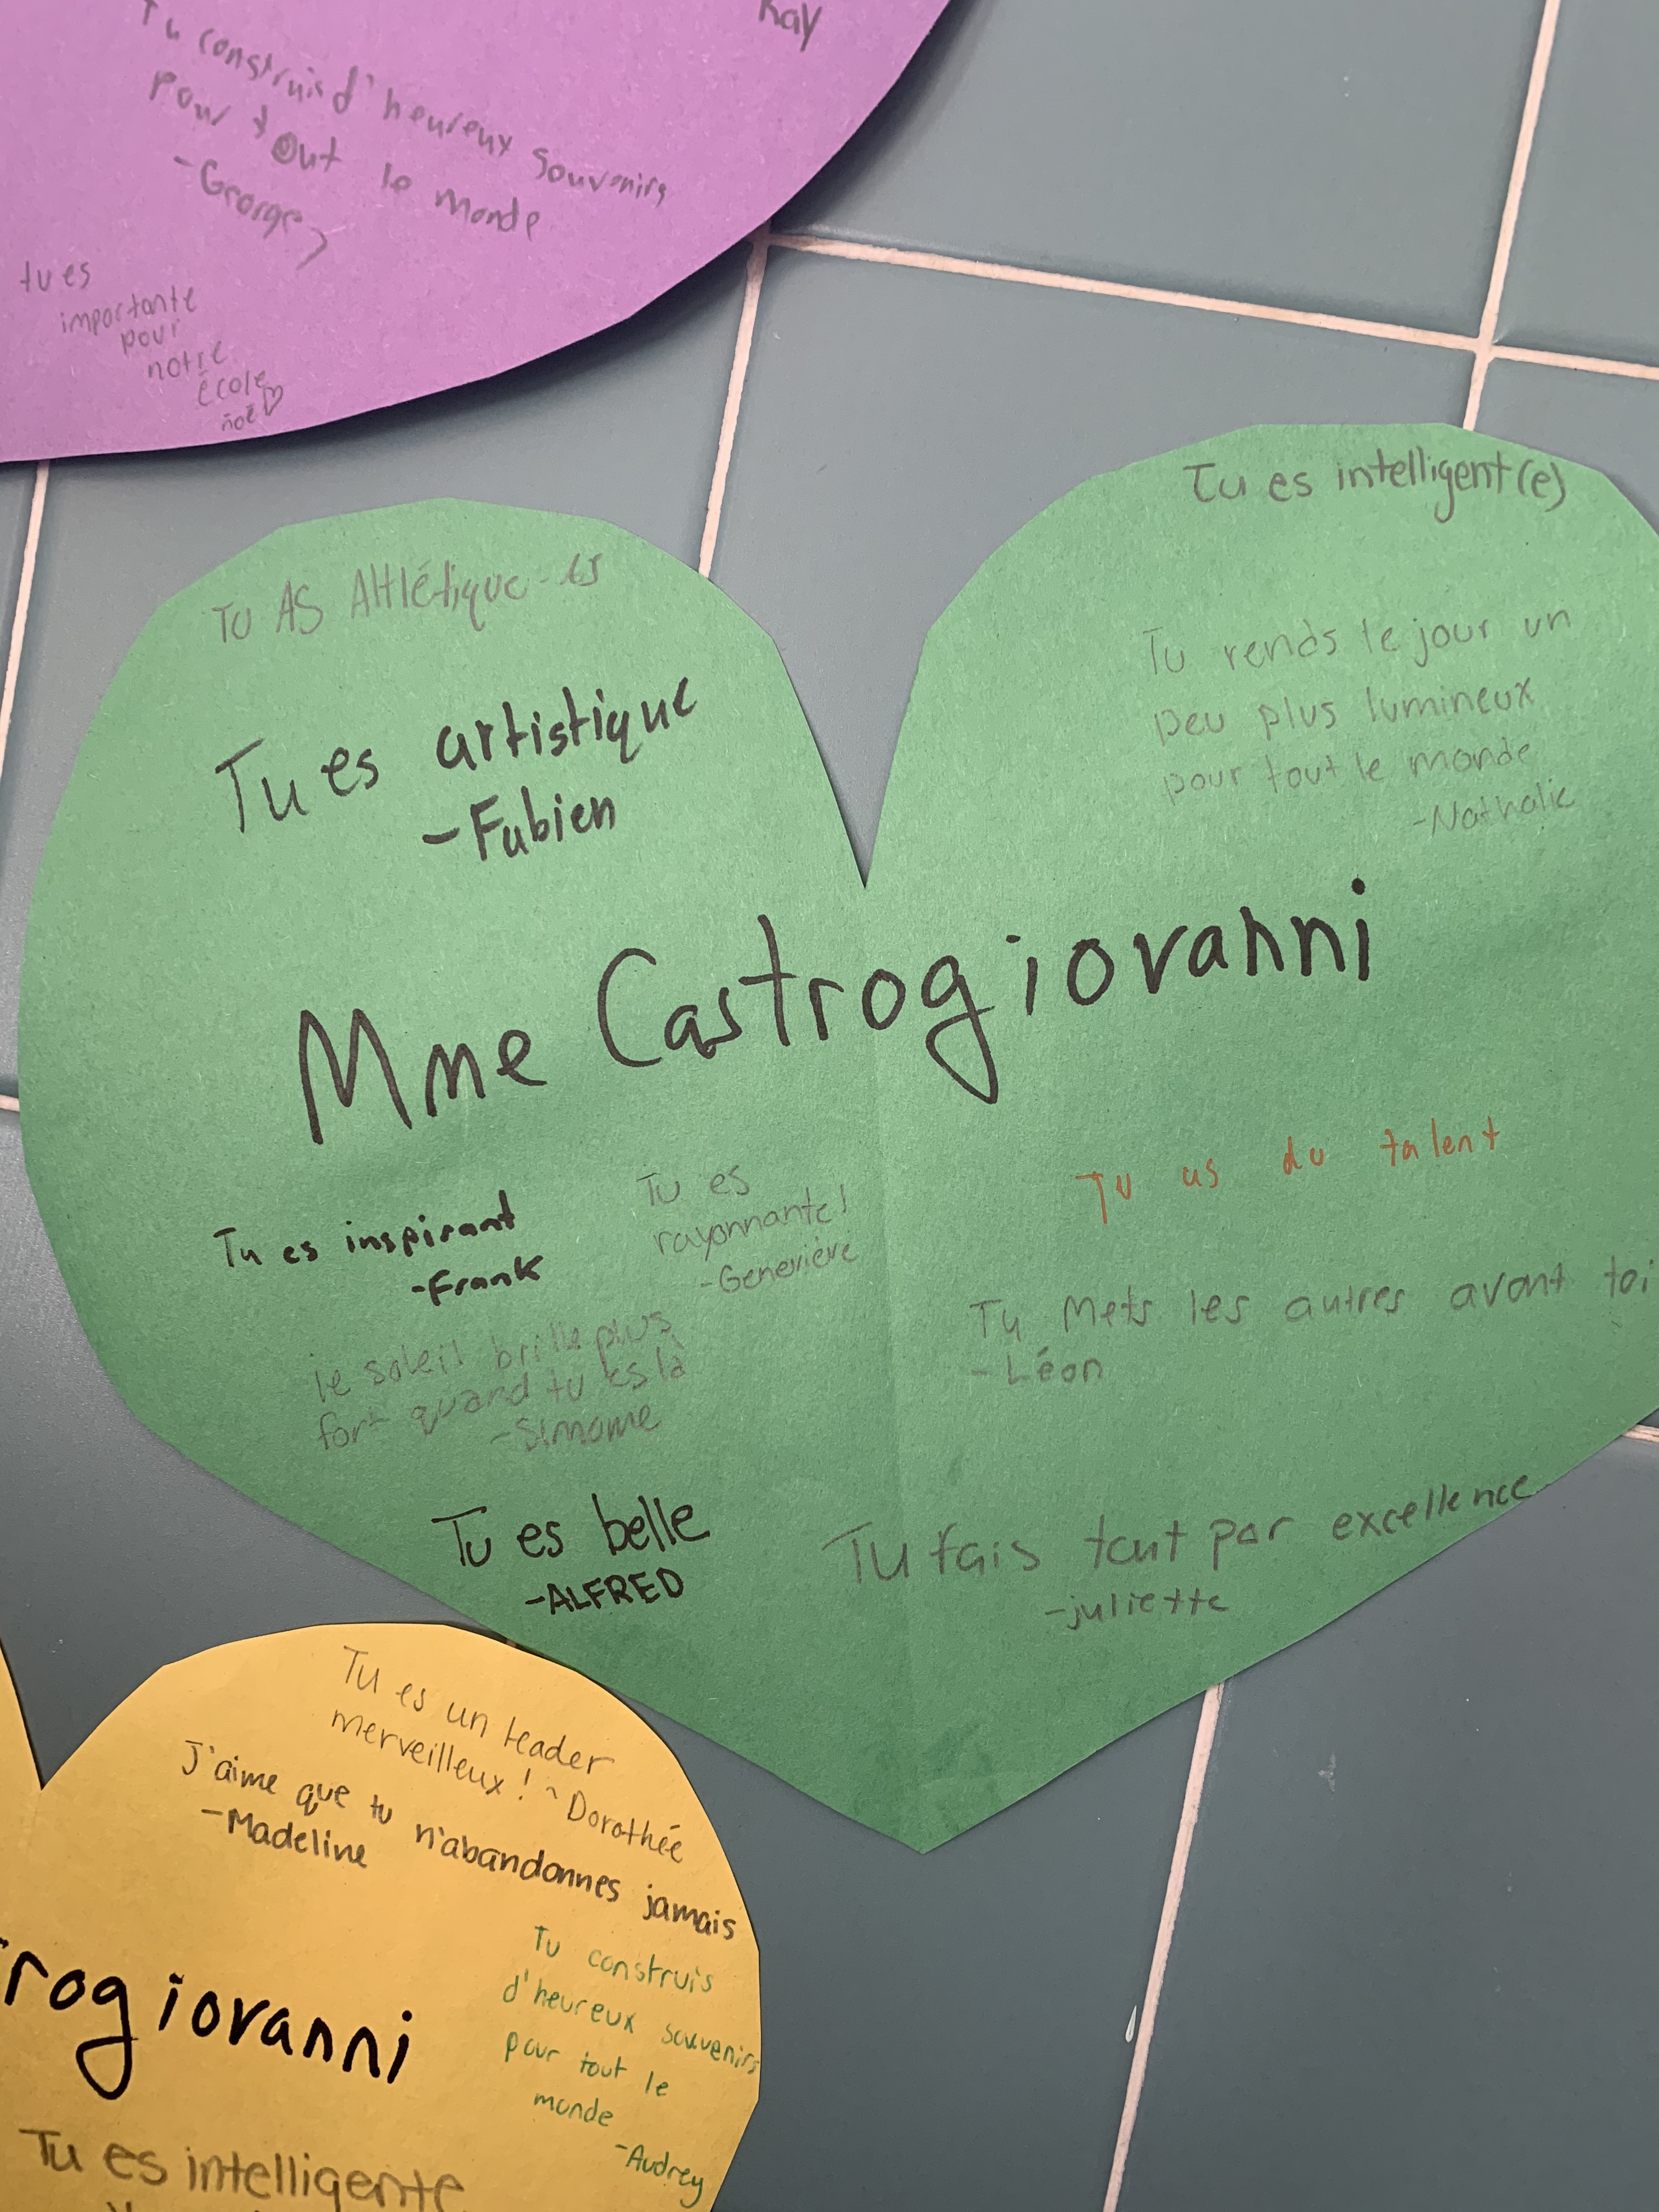 Kay
Tu construis d'heureux souvenirs
pour tout le monde
-George
tu es
importante
pour
notre
école
noé
Tu es intelligent(e)
TU AS Athlétique
Tu es artistique
-Fabien
Tu rends le jour un
peu plus lumineux
pour tout le monde
-Nathalie
Mme Castrogiovanni
Tu as du talent
Tu es inspirant
-Frank
Tu es
rayonnante!
-Geneviève
Tu Mets les autres avant toi
-Léon
le soleil brille plus
fort quand tu es là
-Simone
Tu es belle
-ALFRED
Tu fais tout par excellence
-juliette
Tu es un leader
merveilleux! ~Dorothée
J'aime que tu n'abandonnes jamais
-Madeline
Tu construis
d'heureux souvenirs
pour tout le
monde
-Audrey
rogiovanni
Tu es intelligente